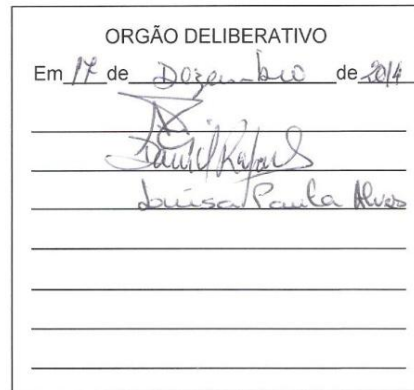 ORGÃO DELIBERATIVO
Em 17 de Dezembro de 2014
Daniel Rafael
Luísa Paula Alves